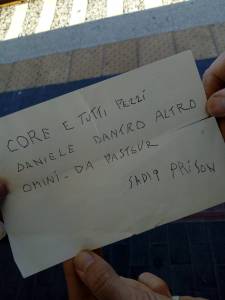 CORE E TUTTI PEZZI
DANIELE DANTRO ALTRO
OMINI - DA PASTEUR
SADIQ PRISON